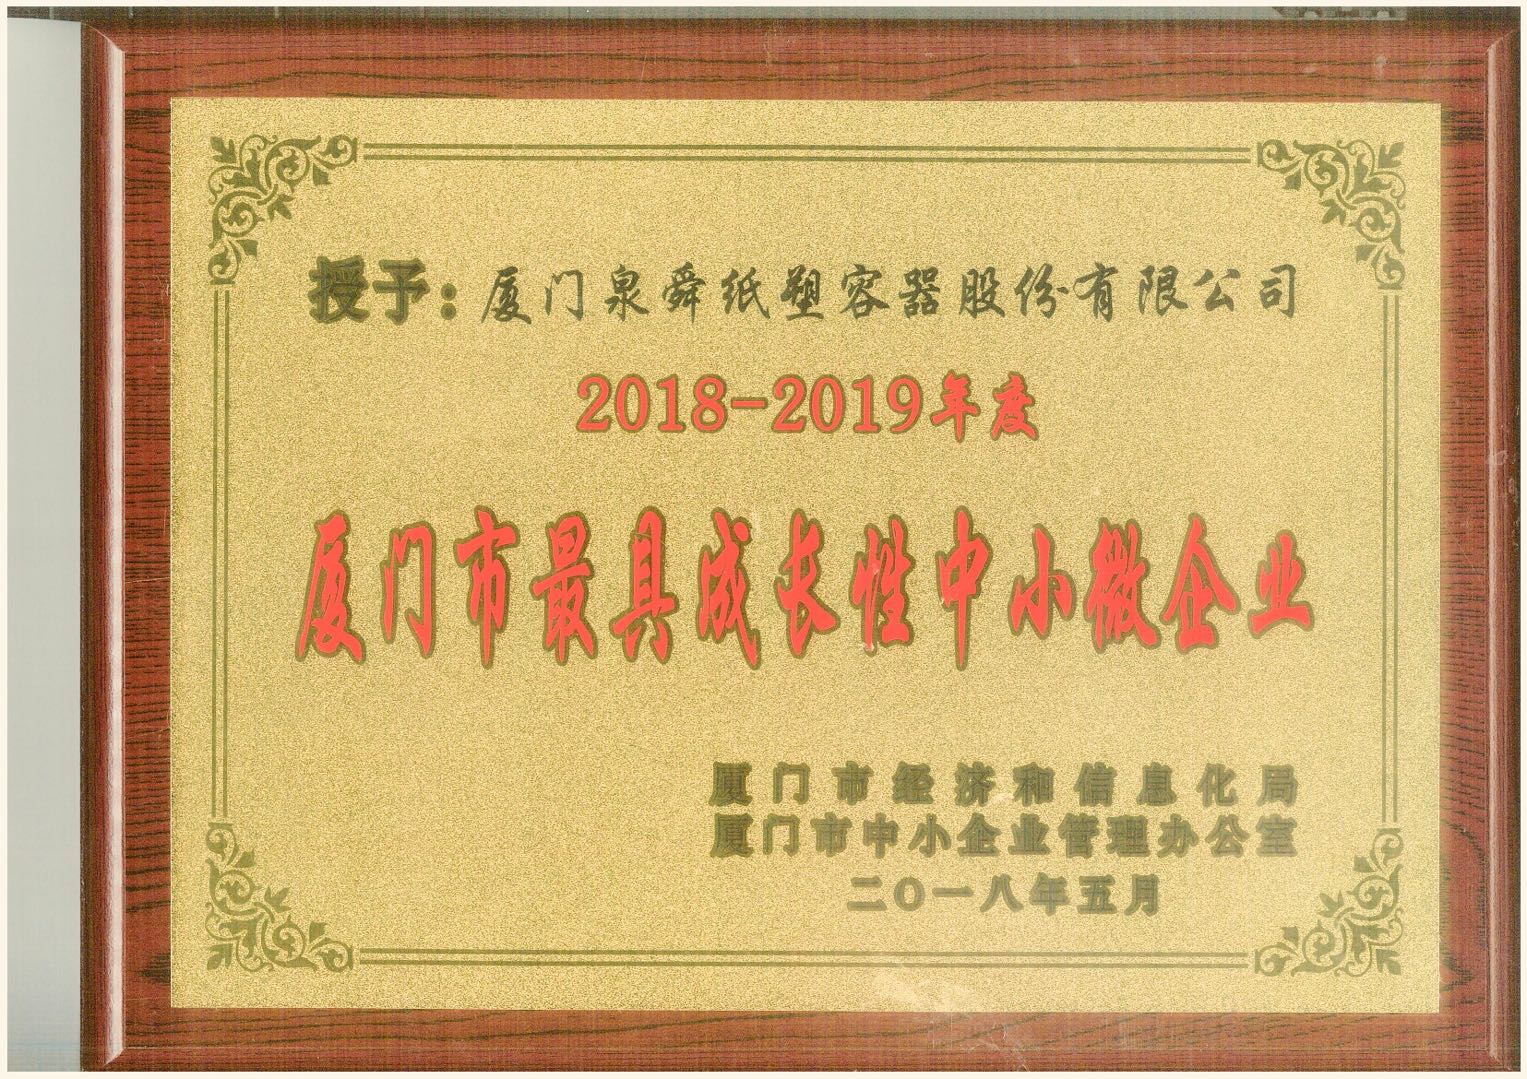 授予：厦门泉舜纸塑容器股份有限公司
2018-2019年度
厦门市最具成长性中小微企业
厦门市经济和信息化局
厦门市中小企业管理办公室
二〇一八年五月